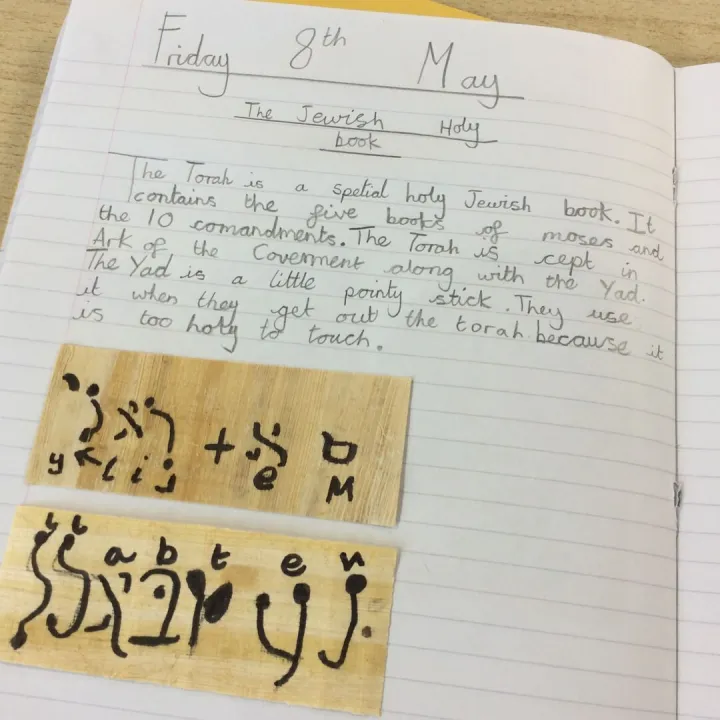 Friday 8th May
The Jewish Holy
book
The Torah is a spetial holy Jewish book. It
contains the five books of moses and
the 10 comandments. The Torah is cept in
Ark of the Coverment along with the Yad.
The Yad is a little pointy stick. They use
it when they get out the torah because it
is too holy to touch.
+
e M
a b t e n